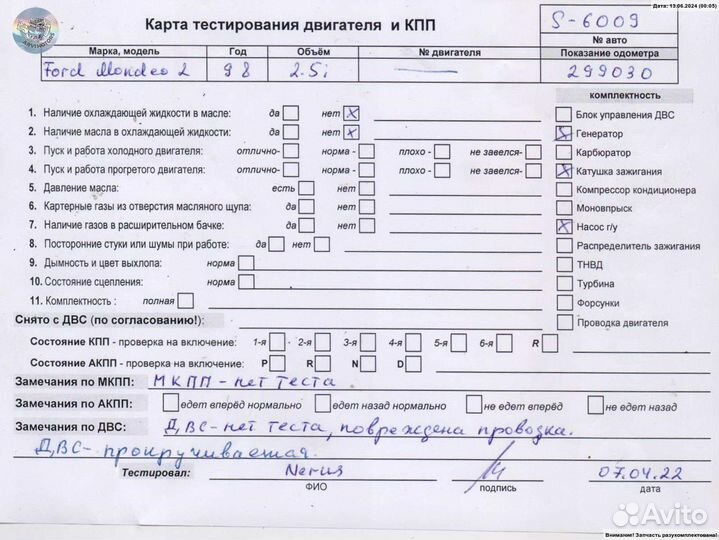 Дата: 13.06.2024 (00:05)
Карта тестирования двигателя и КПП
S-6009
№ авто
Марка, модель Год Объём № двигателя Показание одометра
Ford Mondeo 2 98 2.5i — 299030
комплектность
1. Наличие охлаждающей жидкости в масле: да нет X
Блок управления ДВС
2. Наличие масла в охлаждающей жидкости: да нет X
Генератор
3. Пуск и работа холодного двигателя: отлично- норма - плохо - не завелся-
Карбюратор
4. Пуск и работа прогретого двигателя: отлично- норма - плохо - не завелся-
Катушка зажигания
5. Давление масла: есть нет
Компрессор кондиционера
6. Картерные газы из отверстия масляного щупа: да нет
Моновпрыск
7. Наличие газов в расширительном бачке: да нет
Насос г/у
8. Посторонние стуки или шумы при работе: да нет
Распределитель зажигания
9. Дымность и цвет выхлопа: норма
ТНВД
10. Состояние сцепления: норма
Турбина
11. Комплектность : полная
Форсунки
Снято с ДВС (по согласованию!):
Проводка двигателя
Состояние КПП - проверка на включение: 1-я 2-я 3-я 4-я 5-я 6-я R
Состояние АКПП - проверка на включение: P R N D
Замечания по МКПП: МКПП - нет теста
Замечания по АКПП: едет вперёд нормально едет назад нормально не едет вперёд не едет назад
Замечания по ДВС: ДВС - нет теста, повреждена проводка.
ДВС - прокручиваемая.
Тестировал: Nerius 07.04.22
ФИО подпись дата
Avito
Внимание! Запчасть разукомплектована!